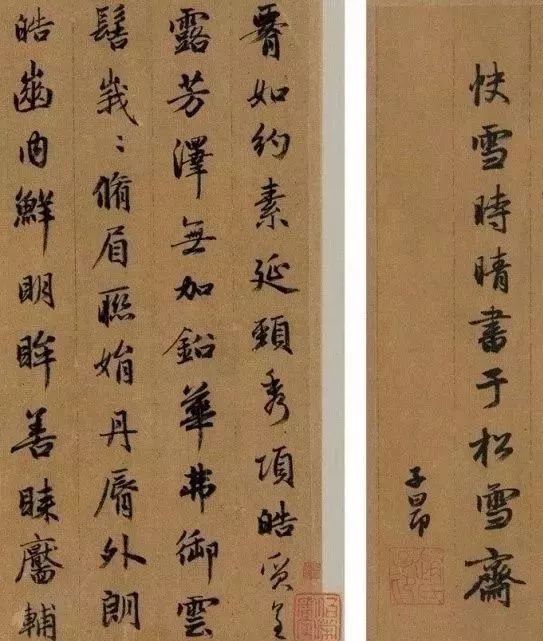 快雪時晴書于松雪齋
子昂
腰如約素延頸秀項皓質呈
露芳澤無加鉛華弗御雲
髻峩〻脩眉聮娟丹脣外朗
皓齒内鮮明眸善睞靨輔